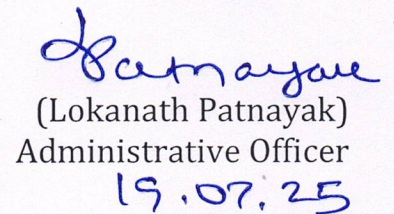 Patnayak
(Lokanath Patnayak)
Administrative Officer
19.07.25